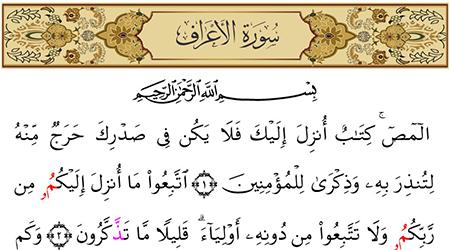 سُورَةُ الأَعْرَافِ
بِسْمِ اللَّهِ الرَّحْمَٰنِ الرَّحِيمِ
الٓمٓصٓ ۚ كِتَٰبٌ أُنزِلَ إِلَيْكَ فَلَا يَكُن فِى صَدْرِكَ حَرَجٌ مِّنْهُ
لِتُنذِرَ بِهِۦ وَذِكْرَىٰ لِلْمُؤْمِنِينَ ۝١ ٱتَّبِعُوا۟ مَآ أُنزِلَ إِلَيْكُمُۥ مِن
رَّبِّكُمُۥ وَلَا تَتَّبِعُوا۟ مِن دُونِهِۦٓ أَوْلِيَآءَ ۗ قَلِيلًا مَّا تَذَّكَّرُونَ ۝٢ وَكَم